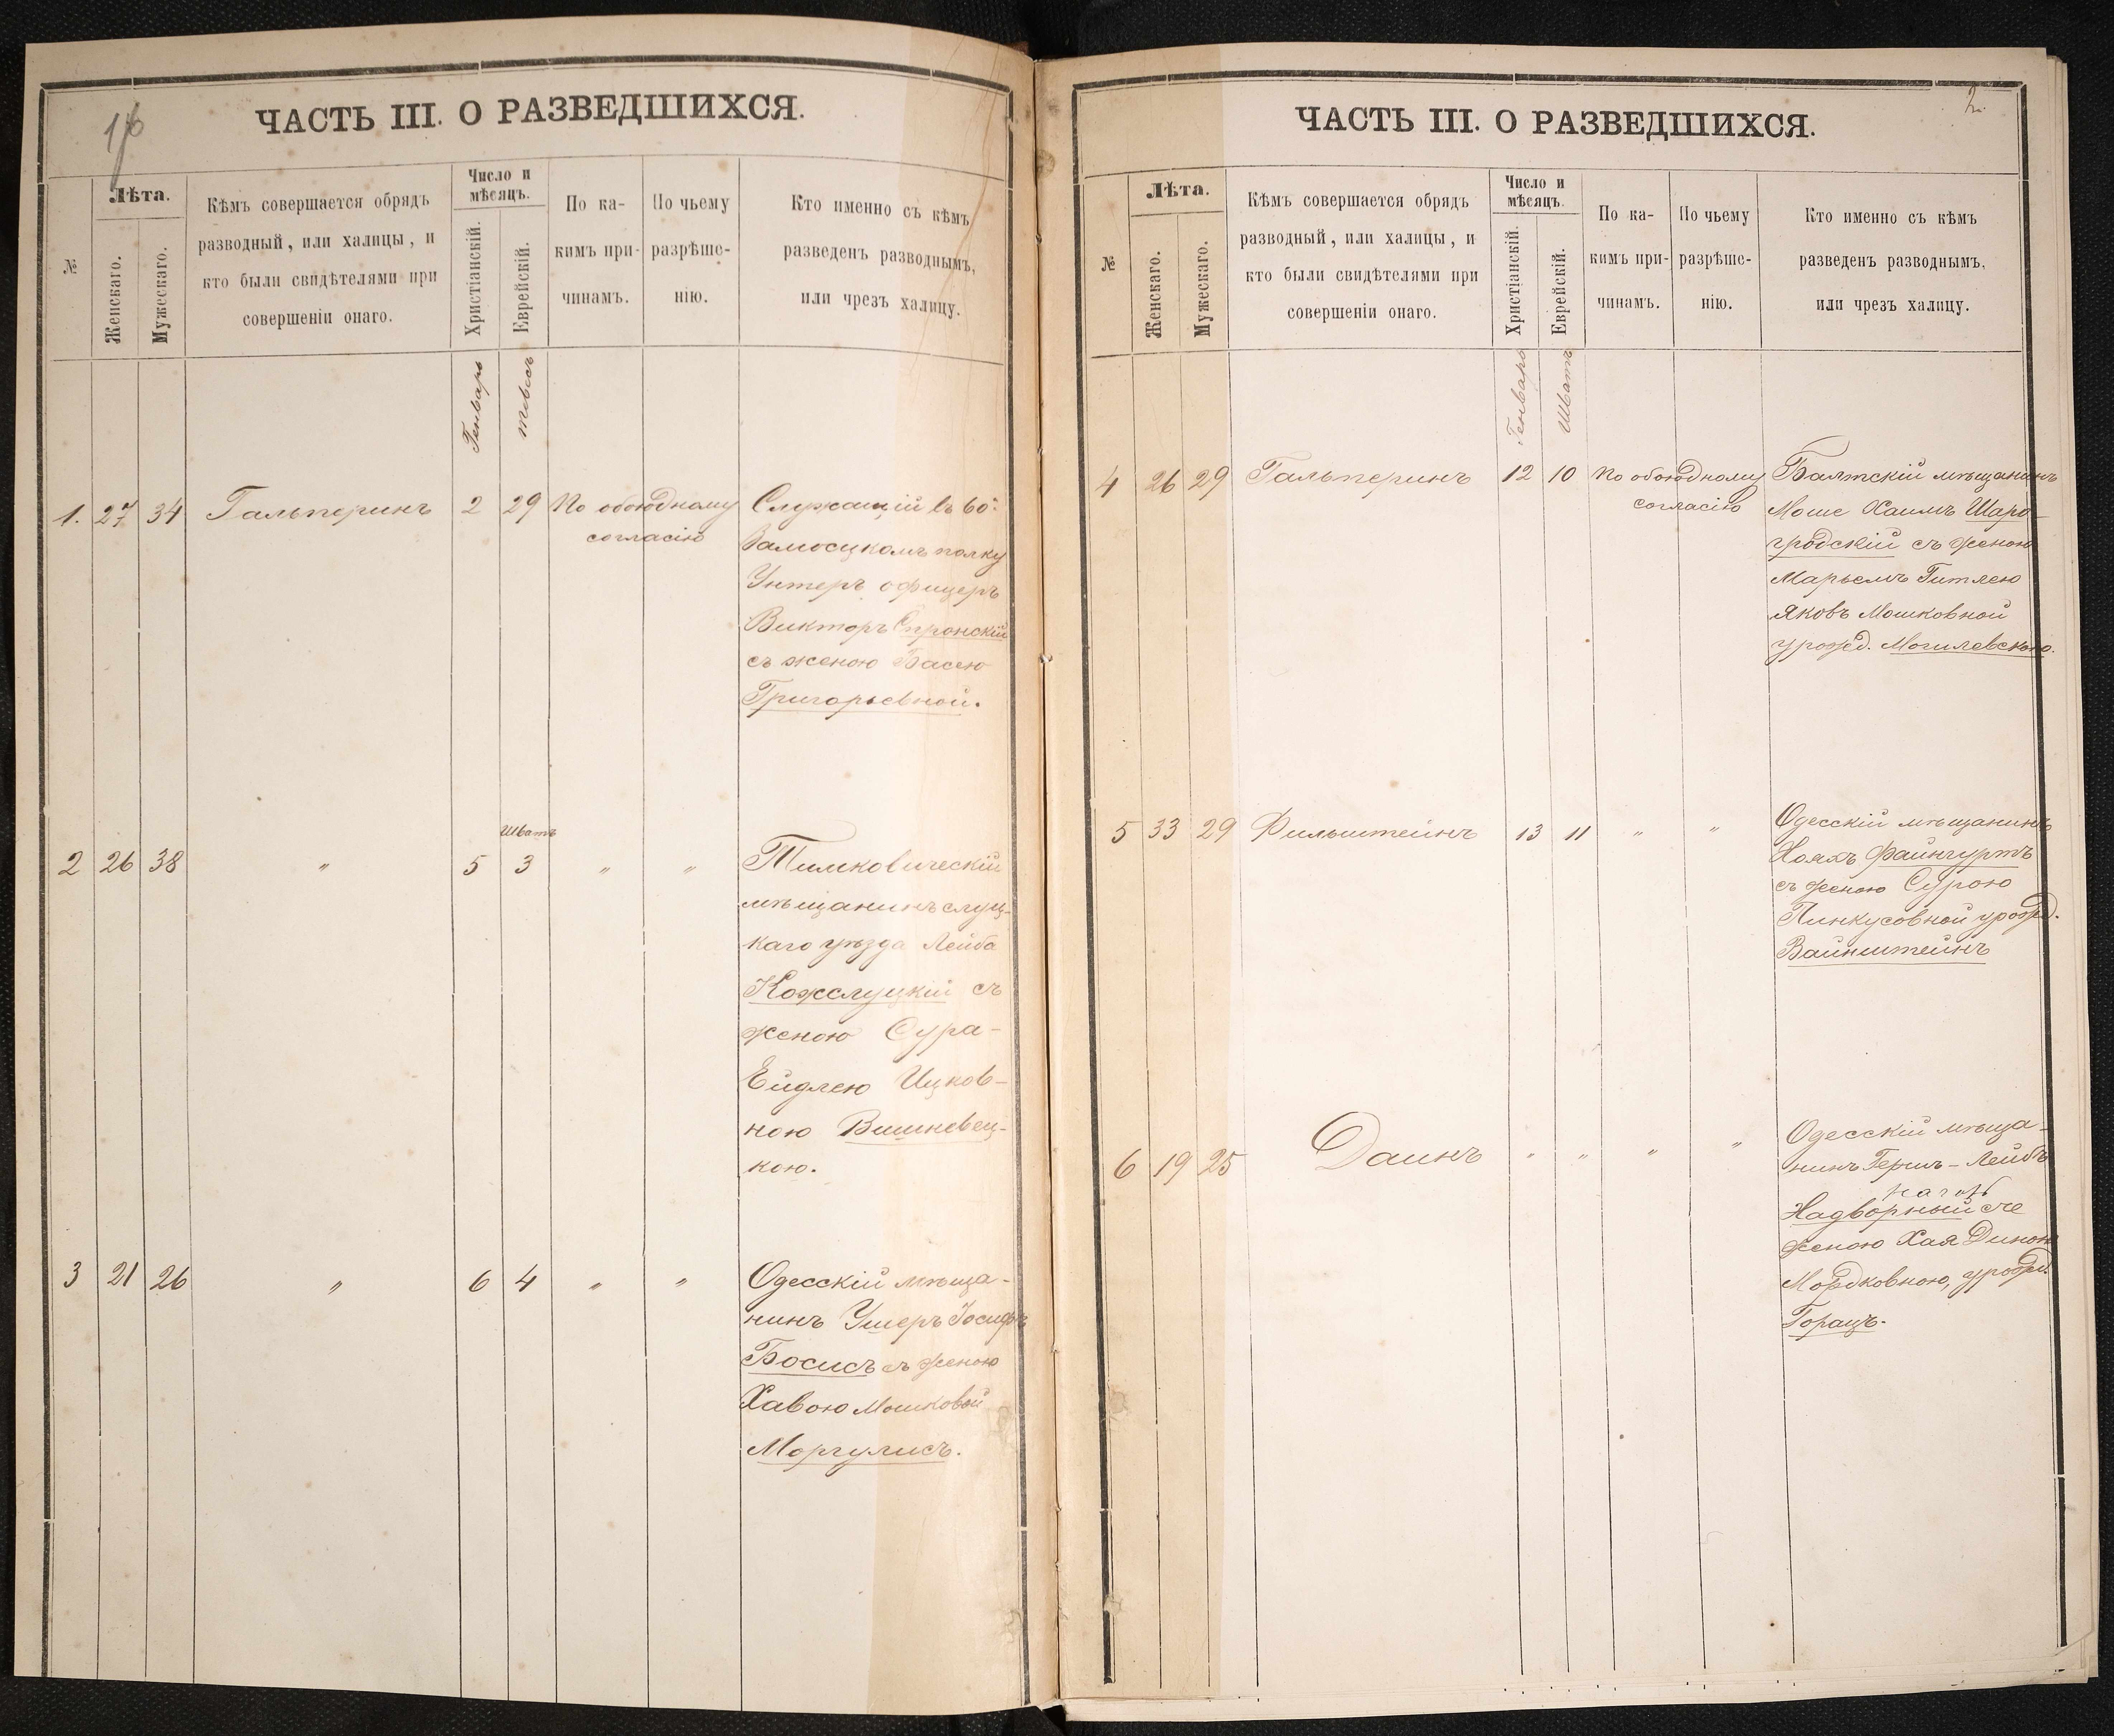 1/6
ЧАСТЬ III. О РАЗВЕДШИХСЯ.
№
Лѣта.
Женскаго.
Мужескаго.
Кѣмъ совершается обрядъ
разводный, или халицы, и
кто были свидѣтелями при
совершеніи онаго.
Число и
мѣсяцъ.
Христіанскій.
Еврейскій.
По ка-
кимъ при-
чинамъ.
По чьему
разрѣше-
нію.
Кто именно съ кѣмъ
разведенъ разводнымъ,
или чрезъ халицу.
Генварь
Тевесъ
1. 27 34 Гальперинъ 2 29 По обоюдному
согласію
Служащій въ 60.
Замосцкомъ полку
Унтеръ офицеръ
Викторъ
съ женою Басею
Григорьевной.
Шватъ
2 26 38 " 5 3 " "
Тимковическій
мѣщанинъ слуц-
каго уѣзда Лейба
Кожслуцкій съ
женою Сура-
Ейдлею Ицков-
ною Вишневец-
кою.
3 21 26 " 6 4 " "
Одесскій мѣща-
нинъ Ушеръ Іосифъ
Босисъ съ женою
Хавою Мошковой
Моргулисъ.
2.
ЧАСТЬ III. О РАЗВЕДШИХСЯ.
№
Лѣта.
Женскаго.
Мужескаго.
Кѣмъ совершается обрядъ
разводный, или халицы, и
кто были свидѣтелями при
совершеніи онаго.
Число и
мѣсяцъ.
Христіанскій.
Еврейскій.
По ка-
кимъ при-
чинамъ.
По чьему
разрѣше-
нію.
Кто именно съ кѣмъ
разведенъ разводнымъ,
или чрезъ халицу.
Генварь
Шватъ
4 26 29 Гальперинъ 12 10 По обоюдному
согласію
Балтскій мѣщанинъ
Моше Хаимъ Шаро-
гродскій съ женою
Марьемъ Гитлею
Яковъ Мошковной
урожд. Могилевскою.
5 33 29 Фильштейнъ 13 11 " "
Одесскій мѣщанинъ
Файнгуртъ
съ женою Сурою
Пинкусовной урожд.
Вайнштейнъ
6 19 25 Даинъ " " " "
Одесскій мѣща-
нинъ Гершъ-Лейбъ
Надворный съ
женою Хая Диною
Мордковною, урожд.
Горацъ.